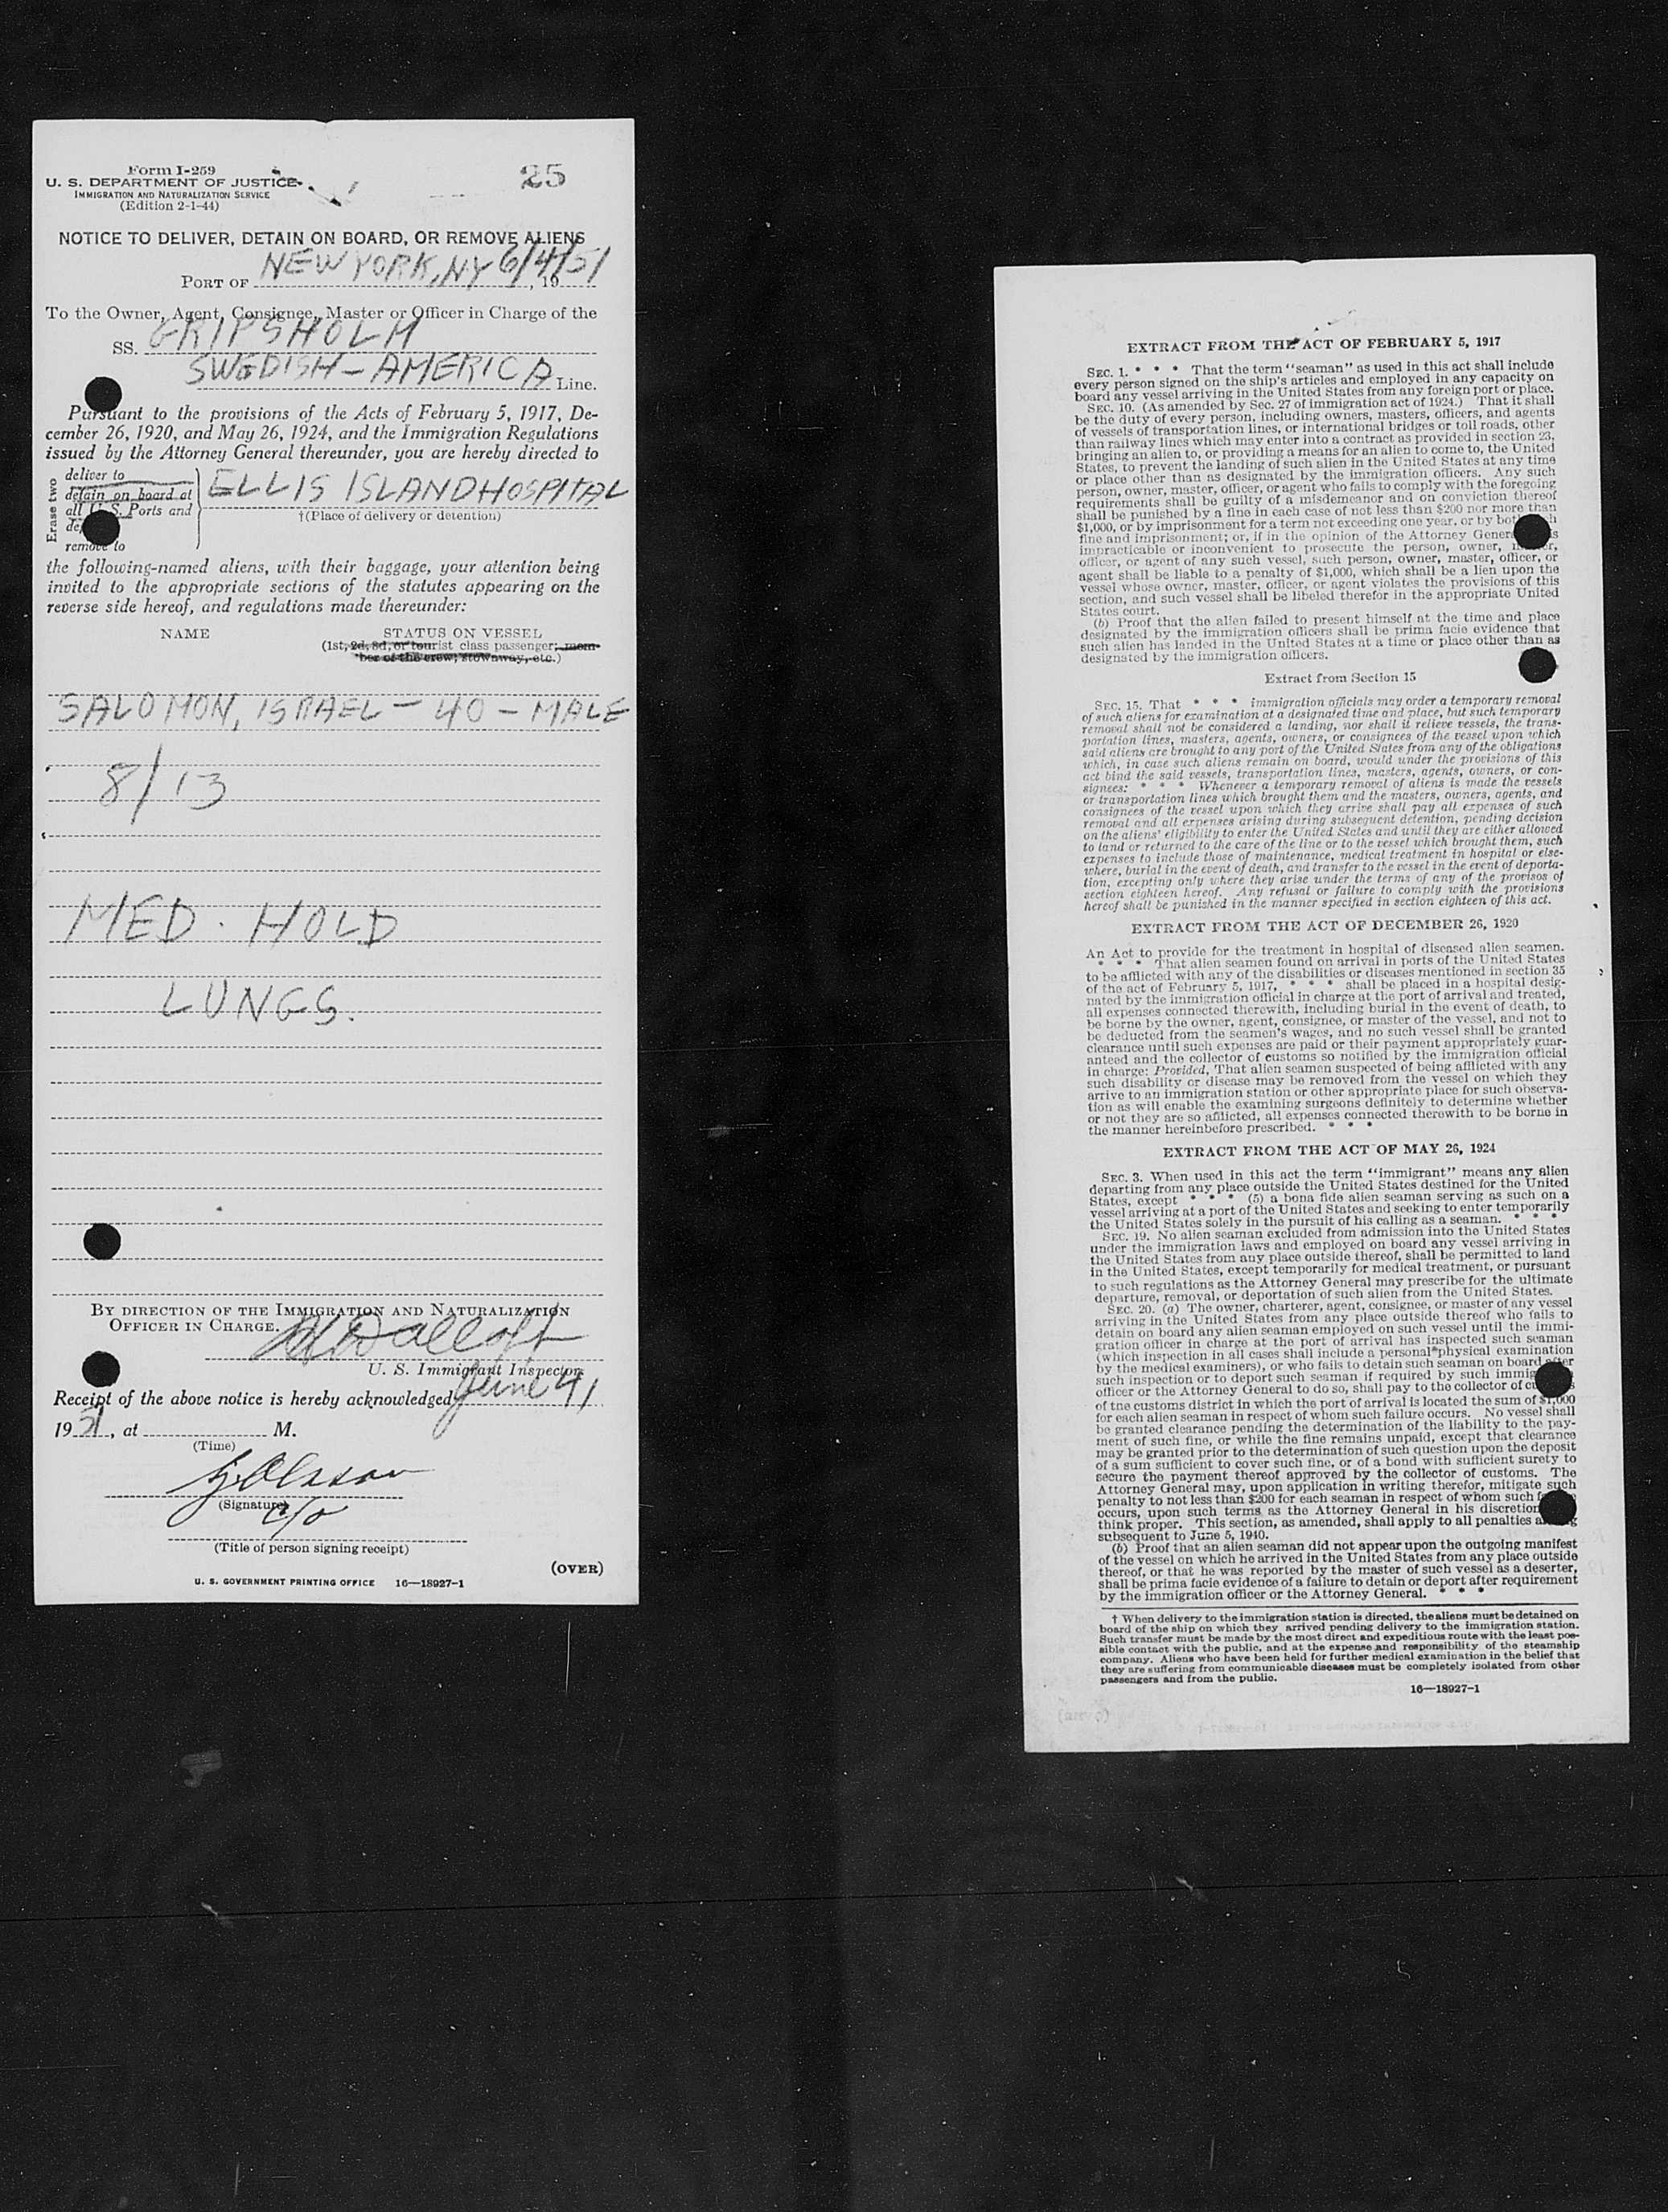 Form I-259
U. S. DEPARTMENT OF JUSTICE
IMMIGRATION AND NATURALIZATION SERVICE
(Edition 2-1-44)
25
NOTICE TO DELIVER, DETAIN ON BOARD, OR REMOVE ALIENS
PORT OF NEW YORK, NY 6/4/51, 19
To the Owner, Agent, Consignee, Master or Officer in Charge of the
SS. GRIPSHOLM
SWEDISH-AMERICA Line.
Pursuant to the provisions of the Acts of February 5, 1917, De-
cember 26, 1920, and May 26, 1924, and the Immigration Regulations
issued by the Attorney General thereunder, you are hereby directed to
Erase two
deliver to
detain on board at
all U.S. Ports and
remove to
ELLIS ISLAND HOSPITAL
†(Place of delivery or detention)
the following-named aliens, with their baggage, your attention being
invited to the appropriate sections of the statutes appearing on the
reverse side hereof, and regulations made thereunder:
NAME STATUS ON VESSEL
(1st, 2d, 3d, or tourist class passenger; mem-
ber of the crew; stowaway, etc.)
SALOMON, ISRAEL - 40 - MALE
8/13
MED. HOLD
LUNGS.
BY DIRECTION OF THE IMMIGRATION AND NATURALIZATION
OFFICER IN CHARGE.
U. S. Immigrant Inspector.
Receipt of the above notice is hereby acknowledged June 4/
1951, at M.
(Time)
(Signature)
c/o
(Title of person signing receipt)
(OVER)
U. S. GOVERNMENT PRINTING OFFICE 16—18927-1
EXTRACT FROM THE ACT OF FEBRUARY 5, 1917
SEC. 1. * * * That the term "seaman" as used in this act shall include
every person signed on the ship's articles and employed in any capacity on
board any vessel arriving in the United States from any foreign port or place.
SEC. 10. (As amended by Sec. 27 of immigration act of 1924.) That it shall
be the duty of every person, including owners, masters, officers, and agents
of vessels of transportation lines, or international bridges or toll roads, other
than railway lines which may enter into a contract as provided in section 23,
bringing an alien to, or providing a means for an alien to come to, the United
States, to prevent the landing of such alien in the United States at any time
or place other than as designated by the immigration officers. Any such
person, owner, master, officer, or agent who fails to comply with the foregoing
requirements shall be guilty of a misdemeanor and on conviction thereof
shall be punished by a fine in each case of not less than $200 nor more than
$1,000, or by imprisonment for a term not exceeding one year, or by both such
fine and imprisonment; or, if in the opinion of the Attorney General it is
impracticable or inconvenient to prosecute the person, owner, master,
officer, or agent of any such vessel, such person, owner, master, officer, or
agent shall be liable to a penalty of $1,000, which shall be a lien upon the
vessel whose owner, master, officer, or agent violates the provisions of this
section, and such vessel shall be libeled therefor in the appropriate United
States court.
(b) Proof that the alien failed to present himself at the time and place
designated by the immigration officers shall be prima facie evidence that
such alien has landed in the United States at a time or place other than as
designated by the immigration officers.
Extract from Section 15
SEC. 15. That * * * immigration officials may order a temporary removal
of such aliens for examination at a designated time and place, but such temporary
removal shall not be considered a landing, nor shall it relieve vessels, the trans-
portation lines, masters, agents, owners, or consignees of the vessel upon which
said aliens are brought to any port of the United States from any of the obligations
which, in case such aliens remain on board, would under the provisions of this
act bind the said vessels, transportation lines, masters, agents, owners, or con-
signees: * * * Whenever a temporary removal of aliens is made the vessels
or transportation lines which brought them and the masters, owners, agents, and
consignees of the vessel upon which they arrive shall pay all expenses of such
removal and all expenses arising during subsequent detention, pending decision
on the aliens' eligibility to enter the United States and until they are either allowed
to land or returned to the care of the line or to the vessel which brought them, such
expenses to include those of maintenance, medical treatment in hospital or else-
where, burial in the event of death, and transfer to the vessel in the event of deporta-
tion, excepting only where they arise under the terms of any of the provisos of
section eighteen hereof. Any refusal or failure to comply with the provisions
hereof shall be punished in the manner specified in section eighteen of this act.
EXTRACT FROM THE ACT OF DECEMBER 26, 1920
An Act to provide for the treatment in hospital of diseased alien seamen.
* * * That alien seamen found on arrival in ports of the United States
to be afflicted with any of the disabilities or diseases mentioned in section 35
of the act of February 5, 1917, * * * shall be placed in a hospital desig-
nated by the immigration official in charge at the port of arrival and treated,
all expenses connected therewith, including burial in the event of death, to
be borne by the owner, agent, consignee, or master of the vessel, and not to
be deducted from the seamen's wages, and no such vessel shall be granted
clearance until such expenses are paid or their payment appropriately guar-
anteed and the collector of customs so notified by the immigration official
in charge: Provided, That alien seamen suspected of being afflicted with any
such disability or disease may be removed from the vessel on which they
arrive to an immigration station or other appropriate place for such observa-
tion as will enable the examining surgeons definitely to determine whether
or not they are so afflicted, all expenses connected therewith to be borne in
the manner hereinbefore prescribed. * * *
EXTRACT FROM THE ACT OF MAY 26, 1924
SEC. 3. When used in this act the term "immigrant" means any alien
departing from any place outside the United States destined for the United
States, except * * * (5) a bona fide alien seaman serving as such on a
vessel arriving at a port of the United States and seeking to enter temporarily
the United States solely in the pursuit of his calling as a seaman. * * *
SEC. 19. No alien seaman excluded from admission into the United States
under the immigration laws and employed on board any vessel arriving in
the United States from any place outside thereof, shall be permitted to land
in the United States, except temporarily for medical treatment, or pursuant
to such regulations as the Attorney General may prescribe for the ultimate
departure, removal, or deportation of such alien from the United States.
SEC. 20. (a) The owner, charterer, agent, consignee, or master of any vessel
arriving in the United States from any place outside thereof who fails to
detain on board any alien seaman employed on such vessel until the immi-
gration officer in charge at the port of arrival has inspected such seaman
(which inspection in all cases shall include a personal physical examination
by the medical examiners), or who fails to detain such seaman on board after
such inspection or to deport such seaman if required by such immig
officer or the Attorney General to do so, shall pay to the collector of cu s
of the customs district in which the port of arrival is located the sum of $1,000
for each alien seaman in respect of whom such failure occurs. No vessel shall
be granted clearance pending the determination of the liability to the pay-
ment of such fine, or while the fine remains unpaid, except that clearance
may be granted prior to the determination of such question upon the deposit
of a sum sufficient to cover such fine, or of a bond with sufficient surety to
secure the payment thereof approved by the collector of customs. The
Attorney General may, upon application in writing therefor, mitigate such
penalty to not less than $200 for each seaman in respect of whom such f
occurs, upon such terms as the Attorney General in his discretion
think proper. This section, as amended, shall apply to all penalties a g
subsequent to June 5, 1940.
(b) Proof that an alien seaman did not appear upon the outgoing manifest
of the vessel on which he arrived in the United States from any place outside
thereof, or that he was reported by the master of such vessel as a deserter,
shall be prima facie evidence of a failure to detain or deport after requirement
by the immigration officer or the Attorney General. * * *
† When delivery to the immigration station is directed, the aliens must be detained on
board of the ship on which they arrived pending delivery to the immigration station.
Such transfer must be made by the most direct and expeditious route with the least pos-
sible contact with the public, and at the expense and responsibility of the steamship
company. Aliens who have been held for further medical examination in the belief that
they are suffering from communicable diseases must be completely isolated from other
passengers and from the public.
16—18927-1